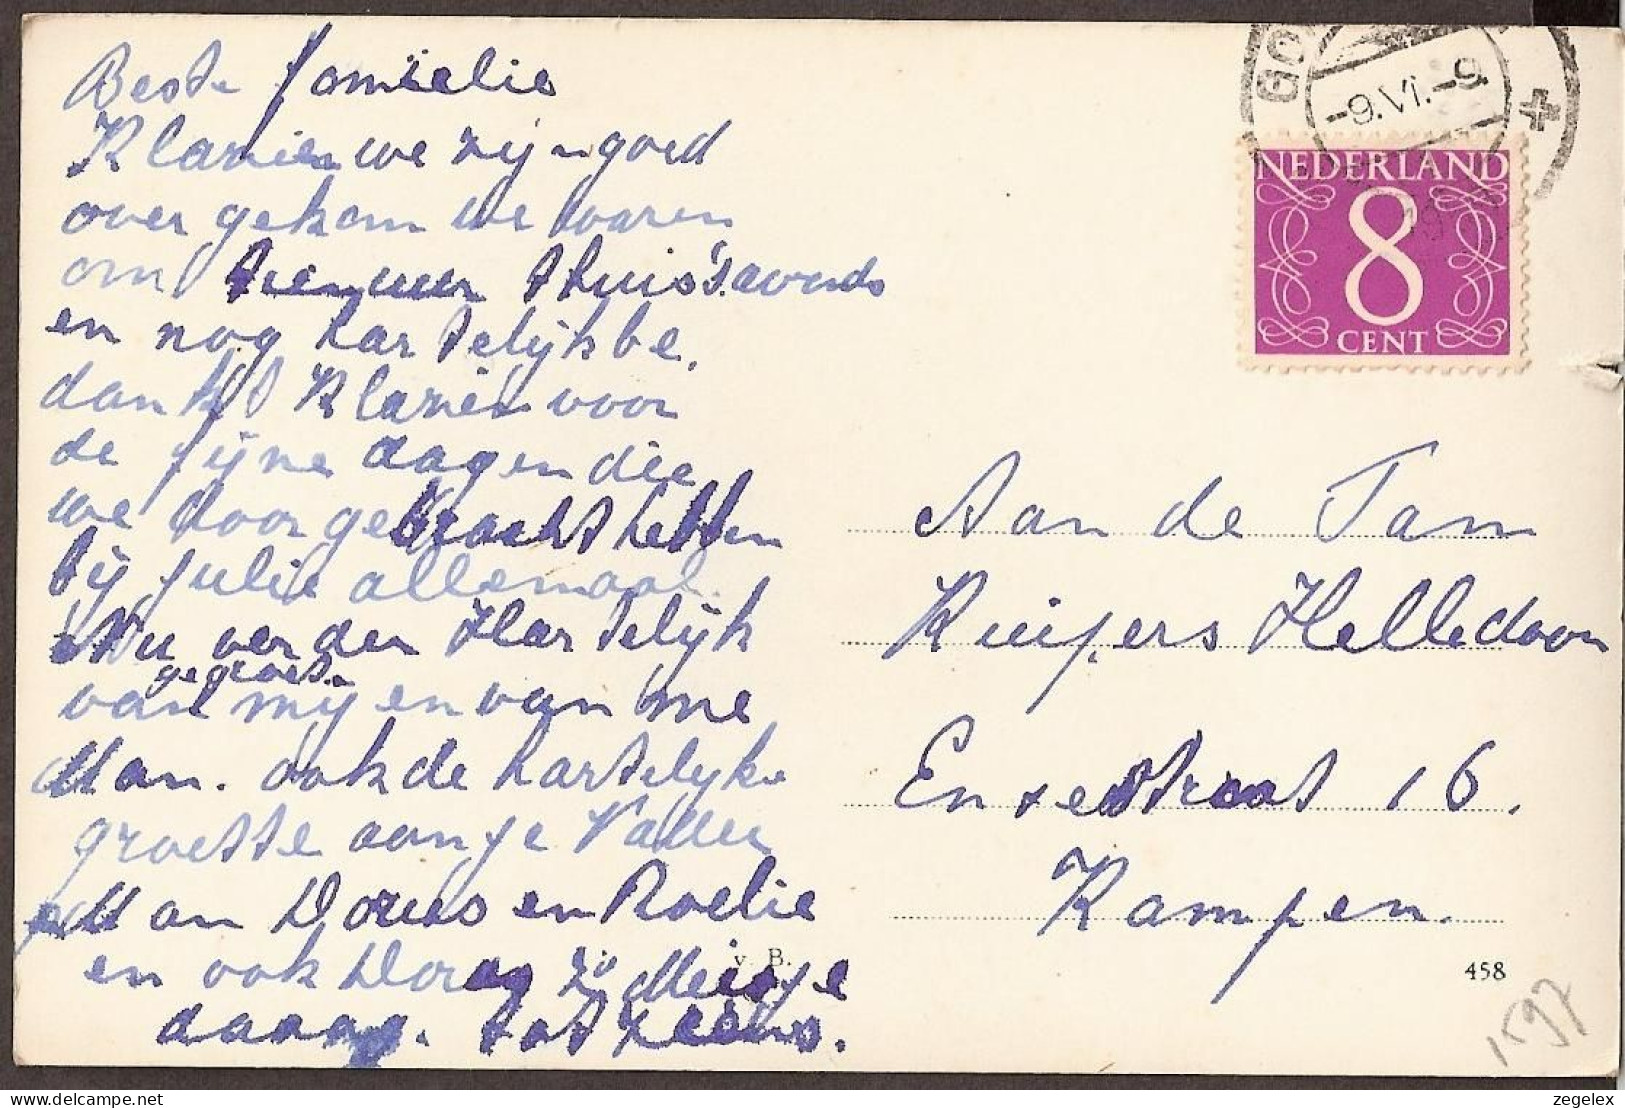 Beste familie
Klasien we zijn goed
over gekom we waren
om tien uur thuis 's avonds
en nog hartelijk be.
dankt Klasien voor
de fijne dagen die
we door gebracht hebben
bij julie allemaal.
Nu worden Hartelijk
gegroet.
van mij en van me
Man. ook de hartelijke
groette aan je Vader
Man Dorus en Roelie
en ook Dora zo Meisje
daaag. tot ziens.
v. B.
GO
-9.VI.-9
NEDERLAND
8
CENT
Aan de Fam
Kuipers Helledoorn
straat 16.
Kampen.
458
1597
zegelex
delcampe.net